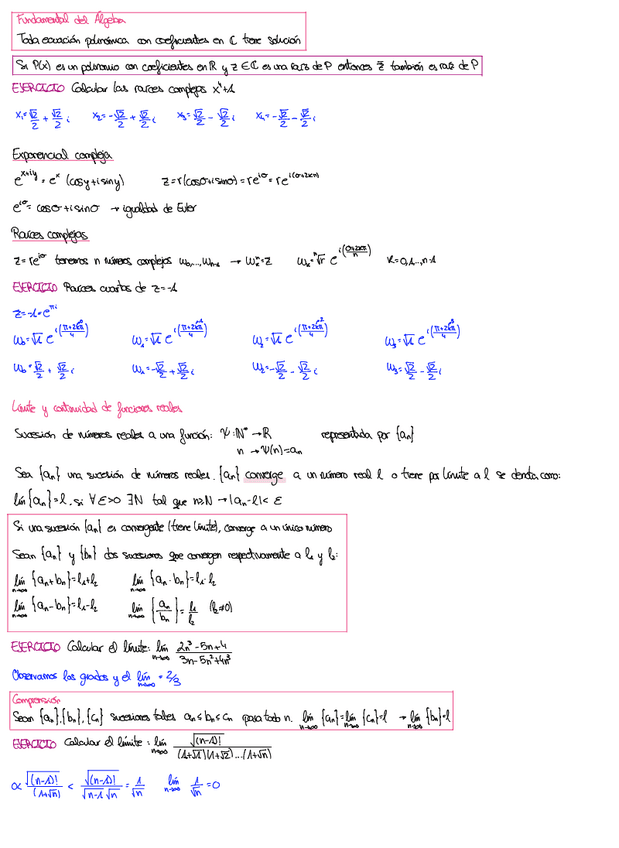 Fundamental del Álgebra
Toda ecuación polinómica con coeficientes en ℂ tiene solución
Si P(x) es un polinomio con coeficientes en ℝ y z ∈ ℂ es una raíz de P entonces z̄ también es raíz de P
EJERCICIO Calcular las raíces complejas x⁴+1
x₁=√2/2 + √2/2 i x₂=-√2/2 + √2/2 i x₃=√2/2 - √2/2 i x₄=-√2/2 - √2/2 i
Exponencial compleja
e^(x+iy) = e^x (cosy+isiny) z=r(cosσ+isinσ)=re^(iσ)=re^(i(σ+2kπ))
e^(iσ)=cosσ+isinσ → igualdad de Euler
Raíces complejas
z=re^(iσ) tenemos n números complejos w₀,...,wₙ₋₁ → wₖⁿ=z wₖ=ⁿ√r e^(i(σ+2kπ)/n) k=0,1,...,n-1
EJERCICIO Raíces cuartas de z=-1
z=-1=e^(πi)
w₀=√1 e^(i(π+2·0π)/4) w₁=√1 e^(i(π+2·1π)/4) w₂=√1 e^(i(π+2·2π)/4) w₃=√1 e^(i(π+2·3π)/4)
w₀=√2/2 + √2/2 i w₁=-√2/2 + √2/2 i w₂=-√2/2 - √2/2 i w₃=√2/2 - √2/2 i
Límite y continuidad de funciones reales
Sucesión de números reales a una función: Ψ:ℕ*→ℝ representada por {aₙ}
n → Ψ(n)=aₙ
Sea {aₙ} una sucesión de números reales. {aₙ} converge a un número real l o tiene por límite a l se denota como:
lim{aₙ}=l. si ∀ε>0 ∃N tal que n≥N → |aₙ-l|<ε
Si una sucesión {aₙ} es convergente (tiene límite), converge a un único número
Sean {aₙ} y {bₙ} dos sucesiones que convergen respectivamente a l₁ y l₂:
lim n→∞ {aₙ+bₙ}=l₁+l₂ lim n→∞ {aₙ·bₙ}=l₁·l₂
lim n→∞ {aₙ-bₙ}=l₁-l₂ lim n→∞ {aₙ/bₙ}=l₁/l₂ (l₂≠0)
EJERCICIO Calcular el límite: lim n→∞ (2n³-5n+4)/(3n-5n²+4n³)
Observamos los grados y el lim n→∞ = 2/3
Compresión
Sean {aₙ},{bₙ},{cₙ} sucesiones tales aₙ≤bₙ≤cₙ para todo n. lim n→∞ {aₙ}=lim n→∞ {cₙ}=l → lim n→∞ {bₙ}=l
EJERCICIO Calcular el límite: lim n→∞ √(n-1)!/((1+√1)(1+√2)...(1+√n))
∝ √(n-1)!/(1+√n) < √(n-1)!/(√n-1 √n) = 1/√n lim n→∞ 1/√n =0